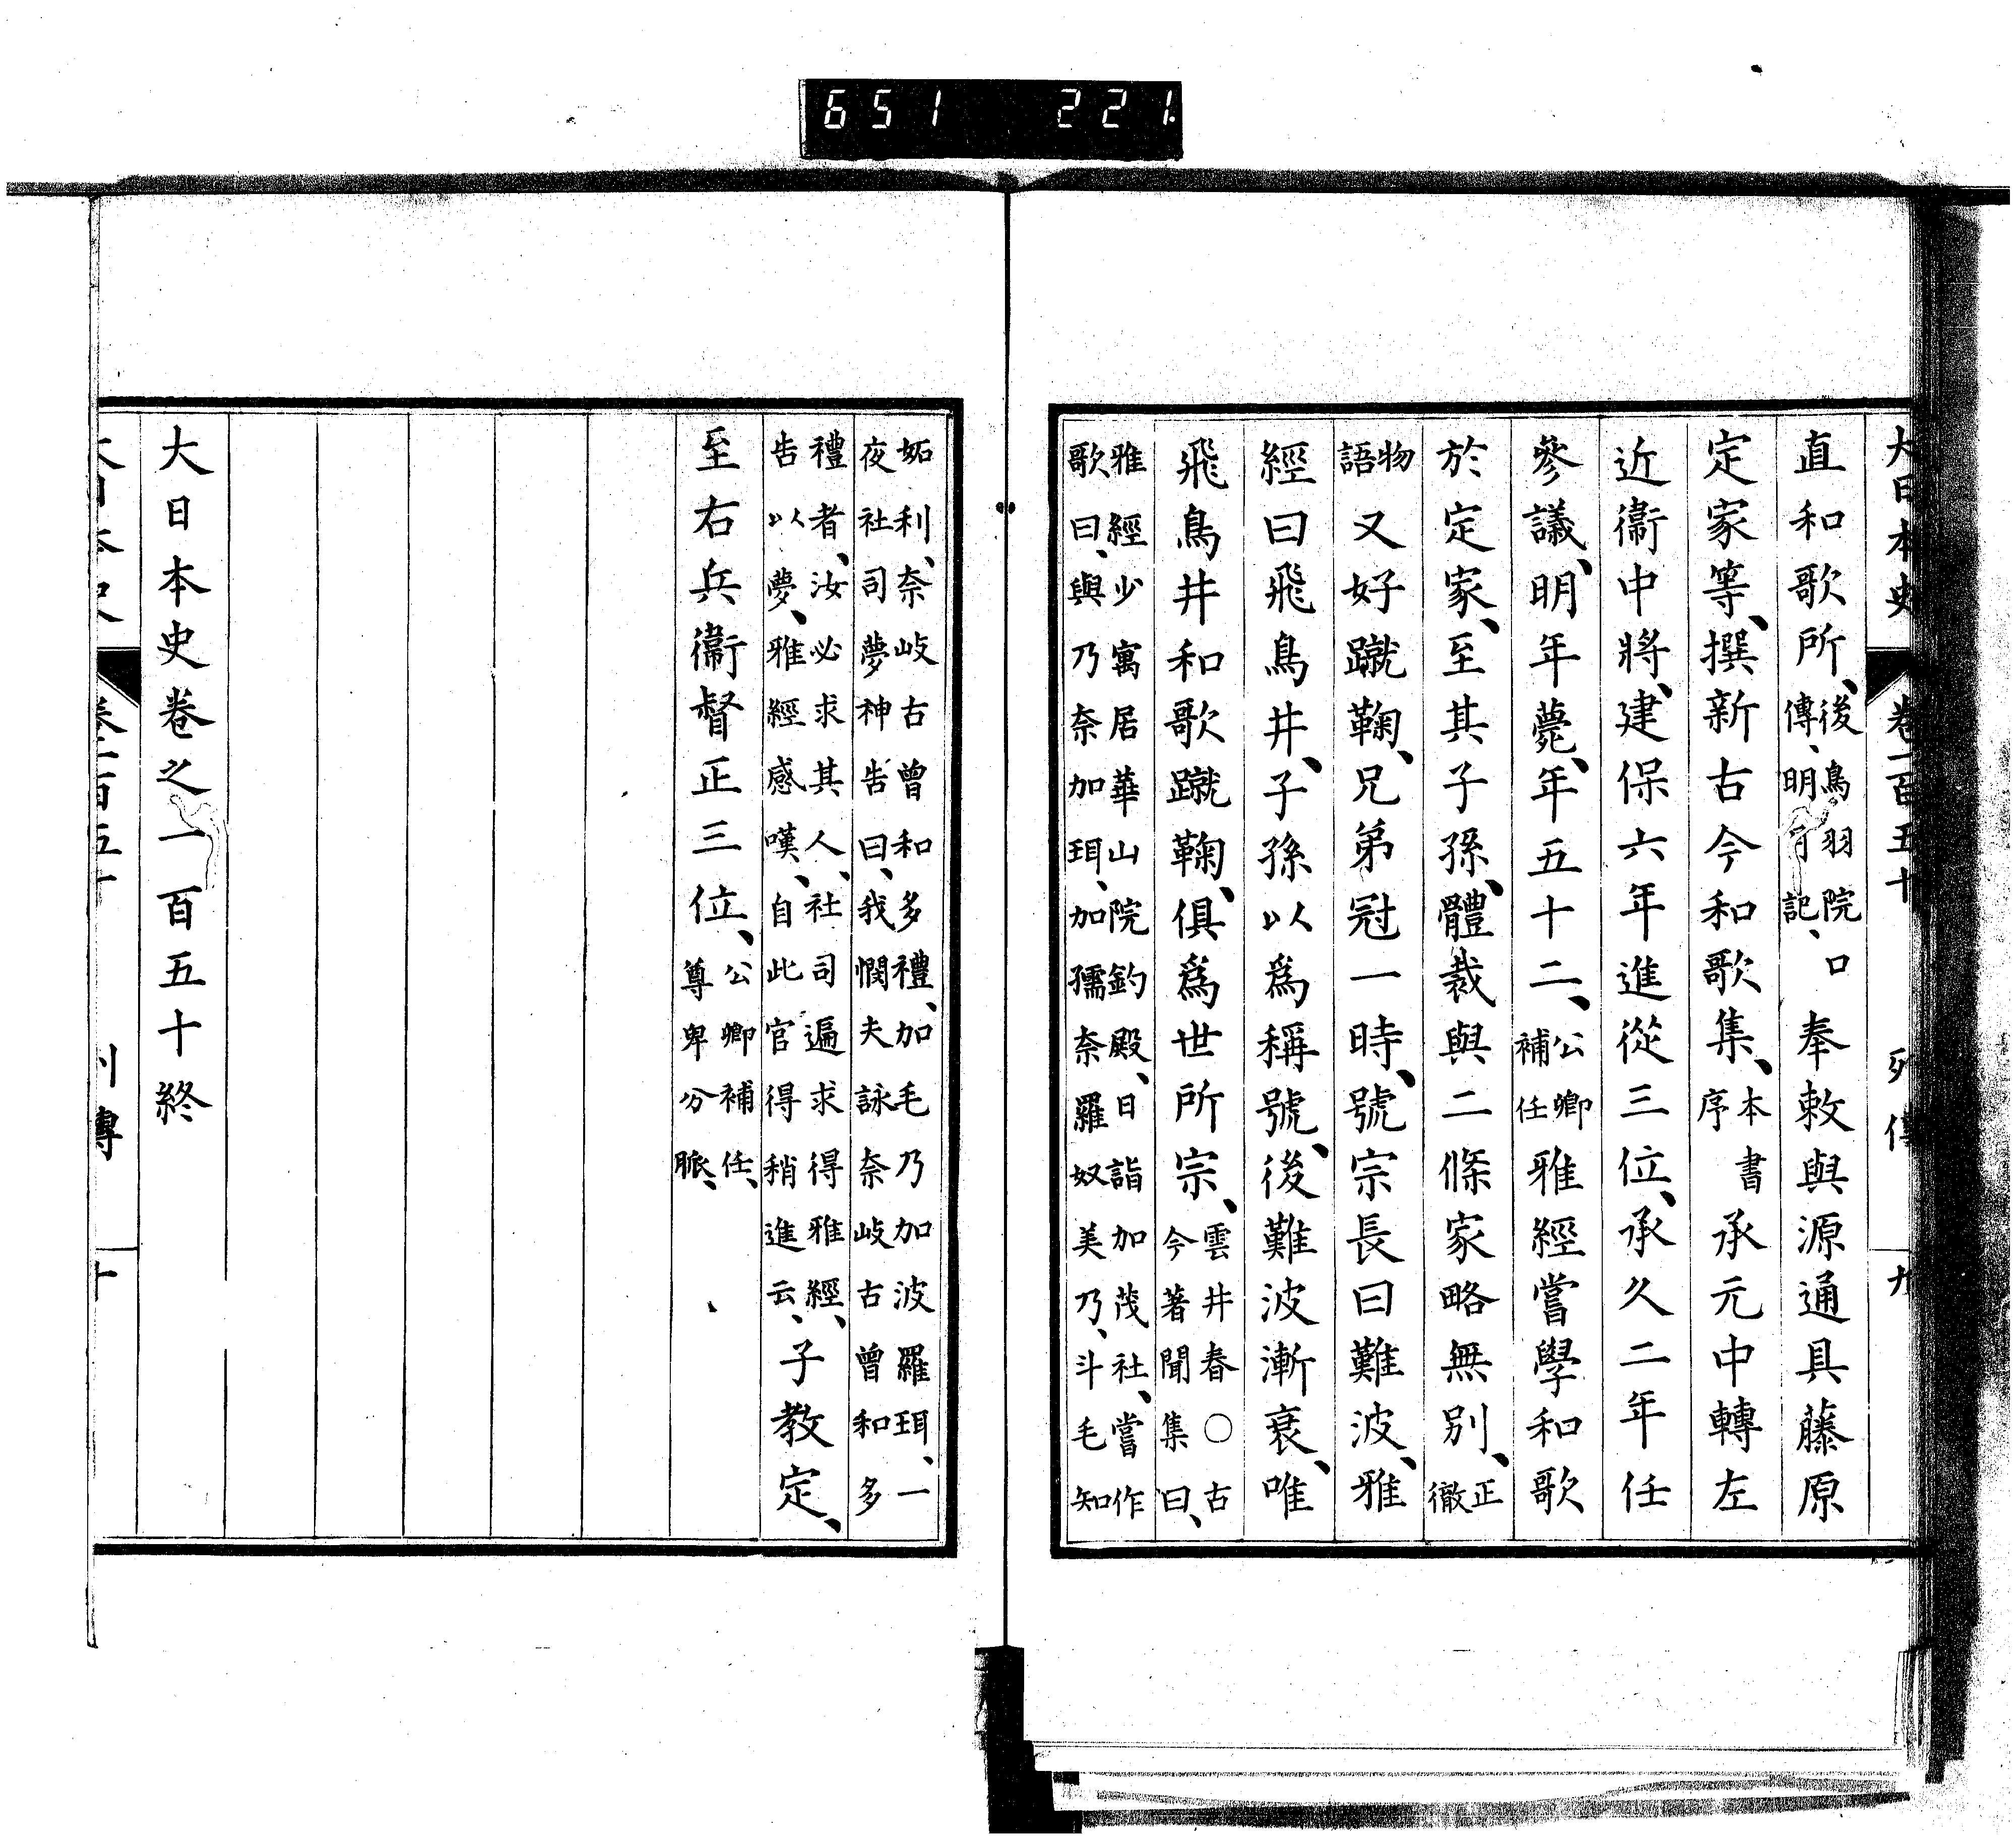 651 221
大日本史 卷一百五十 列傳 九
直和歌所、後鳥羽院口傳、明月記、奉敕與源通具藤原
定家等、撰新古今和歌集、本書序承元中轉左
近衞中將、建保六年進從三位、承久二年任
參議、明年薨、年五十二、公卿補任雅經嘗學和歌
於定家、至其子孫、體裁與二條家略無別、正徹
物語又好蹴鞠、兄弟冠一時、號宗長曰難波、雅
經曰飛鳥井、子孫以爲稱號、後難波漸衰、唯
飛鳥井和歌蹴鞠、俱爲世所宗、雲井春〇古今著聞集曰、
雅經少寓居華山院釣殿、日詣加茂社、嘗作
歌曰、與乃奈加珥、加孺奈羅奴美乃、斗毛知
妬利、奈岐古曾和多禮、加毛乃加波羅珥、一
夜社司夢神告曰、我憫夫詠奈岐古曾和多
禮者、汝必求其人、社司遍求得雅經、
告以夢、雅經感嘆、自此官得稍進云、子教定、
至右兵衞督正三位、公卿補任、尊卑分脈、
大日本史卷之一百五十終
大日本史 卷一百五十 列傳 十